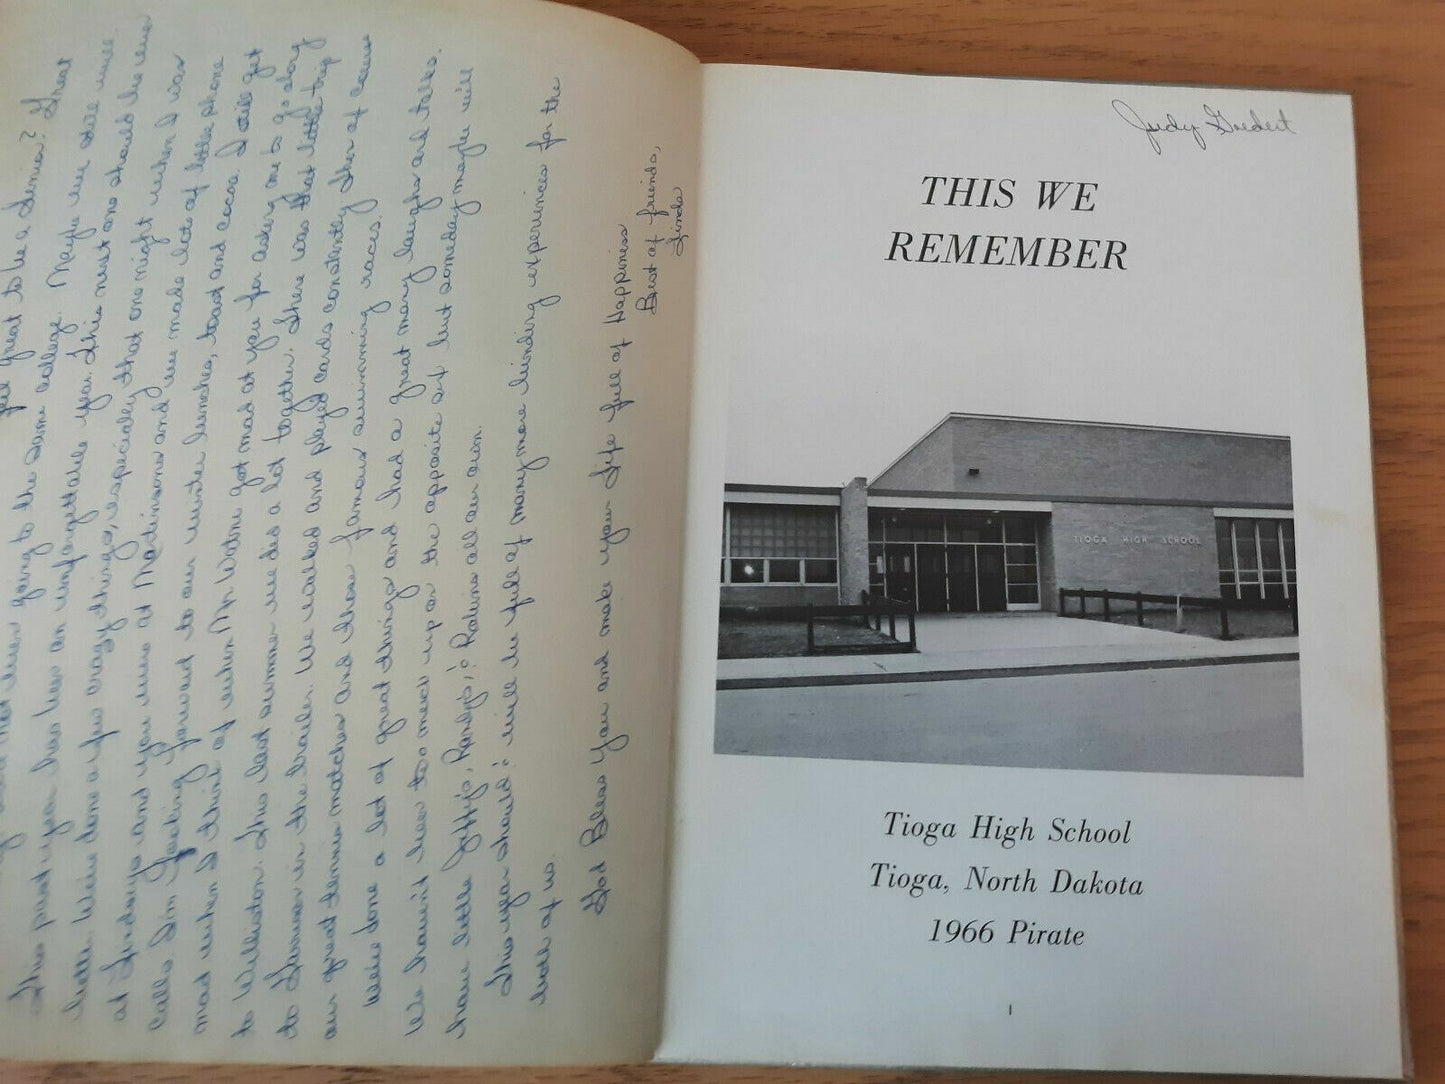 feel great to be a Senior? Great
going to the same college. Maybe we still will.
This past year has been an unforgettable year. This next one should be even
better. We've done a few crazy things, especially that one night when I was
at Lindays and you were at Madisons and we made lots of little phone
calls. I'm looking forward to our winter lunches, toast and cocoa. I still get
mad when I think of when Mr. Watne got mad at you for asking me to go along
to Williston. This last summer we did a lot together. There was that little trip
to in the trailer. We walked and played cards constantly then of course
our great tennis matches and those famous swimming races.
We've done a lot of great things and had a great many laughs and talks.
We haven't been too mixed up on the opposite sex but someday maybe we'll
have little Jeffy's, Randy's, & Robins all our own.
This year should & will be full of many more binding experiences for the
both of us.
God Bless You and make your life full of Happiness
Best of friends,
Linda
Judy Goedert
THIS WE
REMEMBER
TIOGA HIGH SCHOOL
Tioga High School
Tioga, North Dakota
1966 Pirate
1